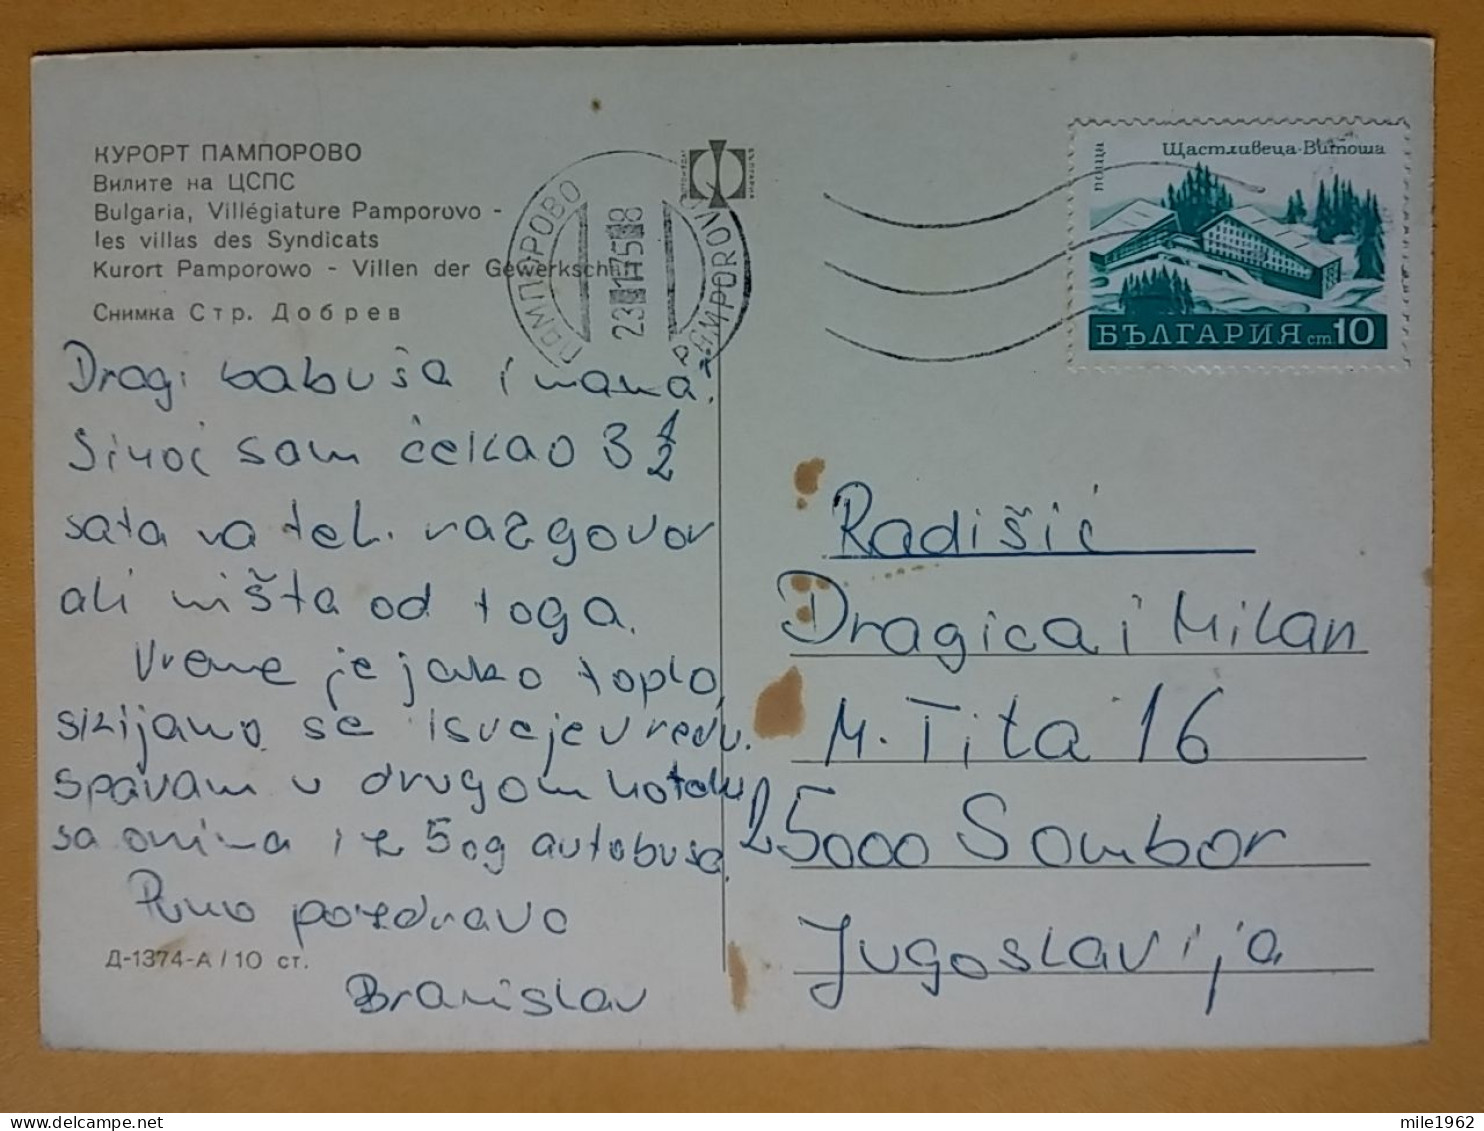 КУРОРТ ПАМПОРОВО
Вилите на ЦСПС
Bulgaria, Villégiature Pamporovo -
les villas des Syndicats
Kurort Pamporowo - Villen der Gewerkschaft
Снимка Стр. Добрев
Dragi babuša i mama.
Sinoć sam čekao 3 1/2
sata na tel. razgovor
ali ništa od toga.
Vreme je jako toplo,
skijamo se i sve je u redu.
Spavam u drugom hotelu
sa onima iz 5og autobusa.
Puno pozdrava
Branislav
Д-1374-А / 10 ст.
ПАМПОРОВО
PAMPOROVO
поща
Щастливеца-Витоша
БЪЛГАРИЯ ст 10
Radišić
Dragica i Milan
M. Tita 16
25000 Sombor
Jugoslavija
mile1962